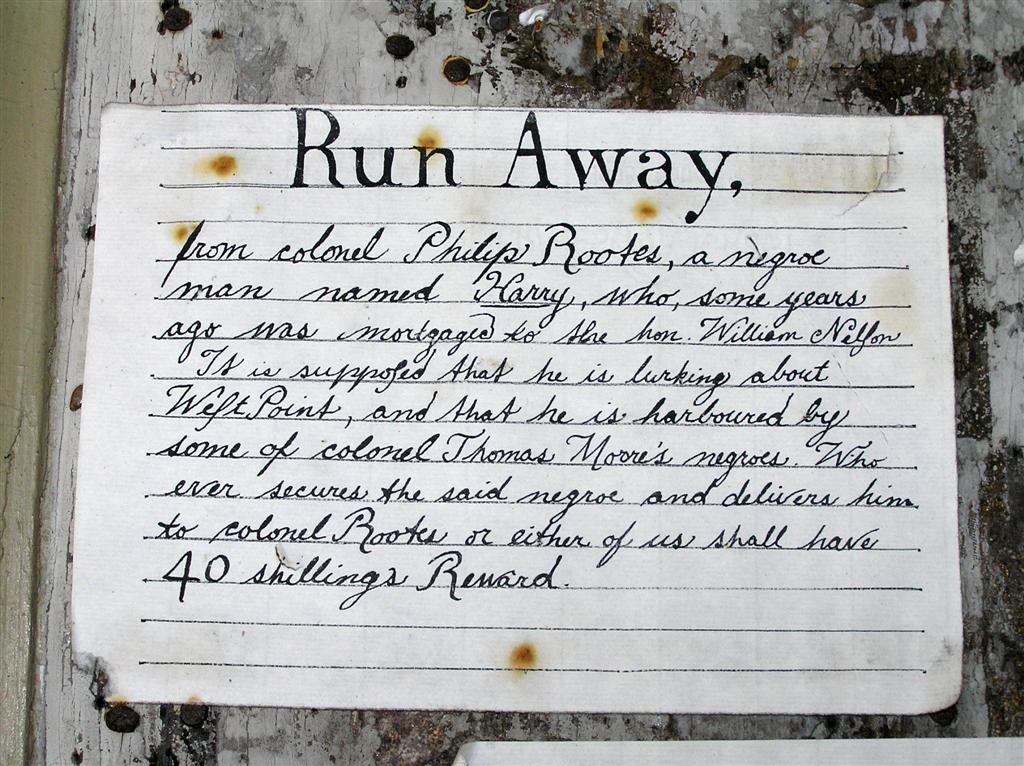 Run Away,
from colonel Philip Rootes, a negroe
man named Harry, who, some years
ago was mortgaged to the hon. William Nelſon
It is suppoſed that he is lurking about
Weſt Point, and that he is harboured by
some of colonel Thomas Moore's negroes. Who
ever secures the said negroe and delivers him
to colonel Rootes or either of us shall have
40 shillings Reward.